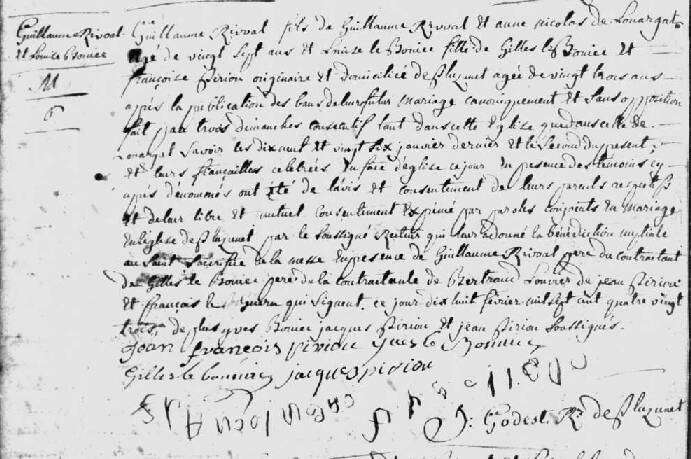 Guillaume Rivoal
et Louise Bouiec
M
6
Guillaume Rivoal fils de Guillaume Rivoal et anne nicolas de Louargat
agé de vingt sept ans et Louise le Bouiec fille de Gilles le Bouiec et
françoise Pirion originaire et domiciliée de Pluzunet agée de vingt trois ans
après la publication des bans de leur futur mariage canoniquement et sans opposition
fait par trois dimanches consecutif tant dans cette église que dans celle de
Louargat savoir les dix neuf et vingt six janvier dernier et le second du present,
et leurs fiançailles celebrées en face d'église ce jour en presence des temoins cy
après dénommés ont été de l'avis et consentement de leurs parents respectifs
et de leur libre et mutuel consentement exprimé par paroles conjoints en mariage
en l'église de Pluzunet par le soussigné Recteur qui leur a donné la bénédiction nuptiale
au saint sacrifice de la messe en presence de Guillaume Rivoal pere du contractant
de Gilles le Bouiec pere de la contractante de Bertrand Louvier de jean Pirion
et françois le qui signent, ce jour dix huit fevrier mil sept cent quatre vingt
trois, de plus yves Bouiec jacques Pirion et jean Pirion soussignés.
Joan francois pirion yves le Bonniec
Gilles le bonniec jacques pirion
J: Godest. Rr. de Pluzunet